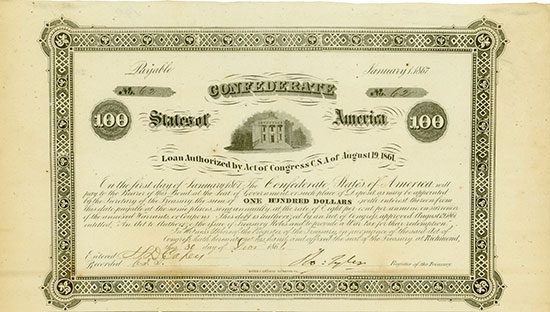 Payable January 1, 1867
CONFEDERATE
No. 62 No. 62
100 States of America 100
Loan Authorized by Act of Congress C.S.A. of August 19, 1861.
On the first day of January 1867 The Confederate States of America will
pay to the Bearer of this Bond at the Seat of Government, or such place of Deposit, as may be appointed
by the Secretary of the Treasury the sum of ONE HUNDRED DOLLARS with interest thereon from
this date payable at the same places, semi annually, at the rate of Eight per Cent per annum on surrender
of the annexed Warrants, or Coupons. This debt is authorized by an Act of Congress approved August 19, 1861
entitled, An Act to Authorize the Issue of Treasury Notes and to provide a War Tax for their redemption.
the Register of the Treasury, in pursuance of the said Act of
Congress, hath hereunto set his hand and affixed the seal of the Treasury, at Richmond,
day of 1861
Entered
Recorded Register of the Treasury.